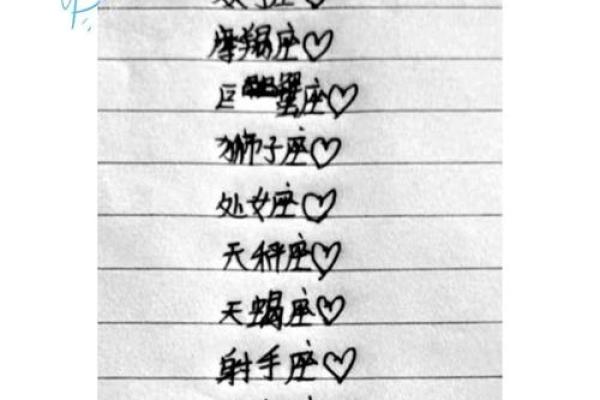 摩羯座♡
巨蟹座♡
狮子座♡
处女座♡
天秤座♡
天蝎座♡
射手座♡